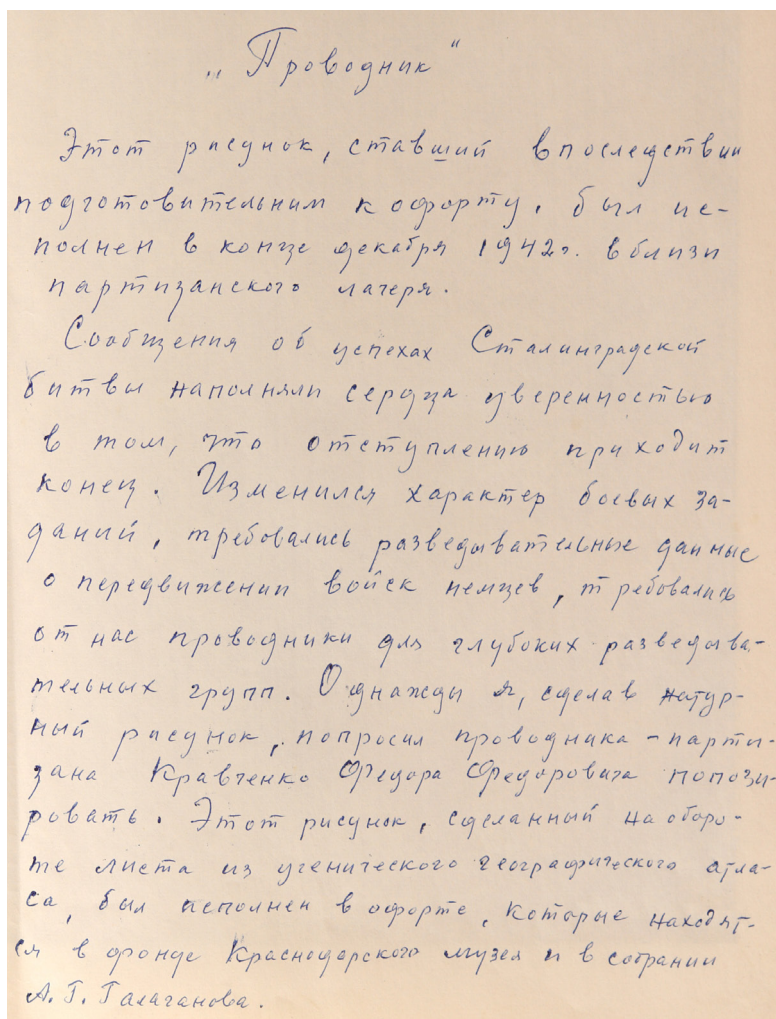 „Проводник“
Этот рисунок, ставший впоследствии
подготовительным к офорту, был ис-
полнен в конце декабря 1942г. вблизи
партизанского лагеря.
Сообщения об успехах Сталинградской
битвы наполняли сердца уверенностью
в том, что отступлению приходит
конец. Изменился характер боевых за-
даний, требовались разведывательные данные
о передвижении войск немцев, требовались
от нас проводники для глубоких разведыва-
тельных групп. Однажды я, сделав натур-
ный рисунок, попросил проводника-парти-
зана Кравченко Федора Федоровича попози-
ровать. Этот рисунок, сделанный на оборо-
те листа из ученического географического атла-
са, был исполнен в офорте, которые находят-
ся в фонде Краснодарского музея и в собрании
А. Г. Галаганова.